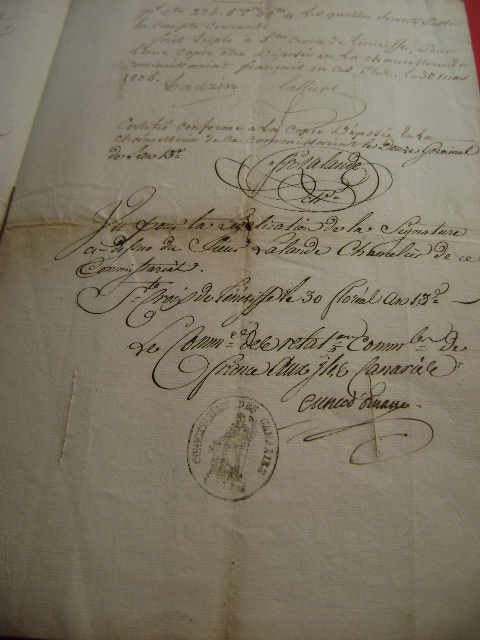 le compte courant
fait triple à Ste Croix de Ténériffe, et dont
l'une copie étés déposée en la chancellerie du
commissariat français en ces Isles. le 30 mars
1805. Cauvin
Certifié conforme a la Copie Déposée En la
chancellerie de ce commissariat le Douze Germinal
de l'an 13e
Lalande
Cher
Vu pour la legalisation de la Signature
ci dessus du Sieur Lalande Chancelier de ce
Commissariat.
Ste Croix de Ténériffe le 30 floréal an 13e
Le Commre des relatons Commles de
france aux isles Canaries
cuneo d'ornano.
COMMISSARIAT DES CANARIES